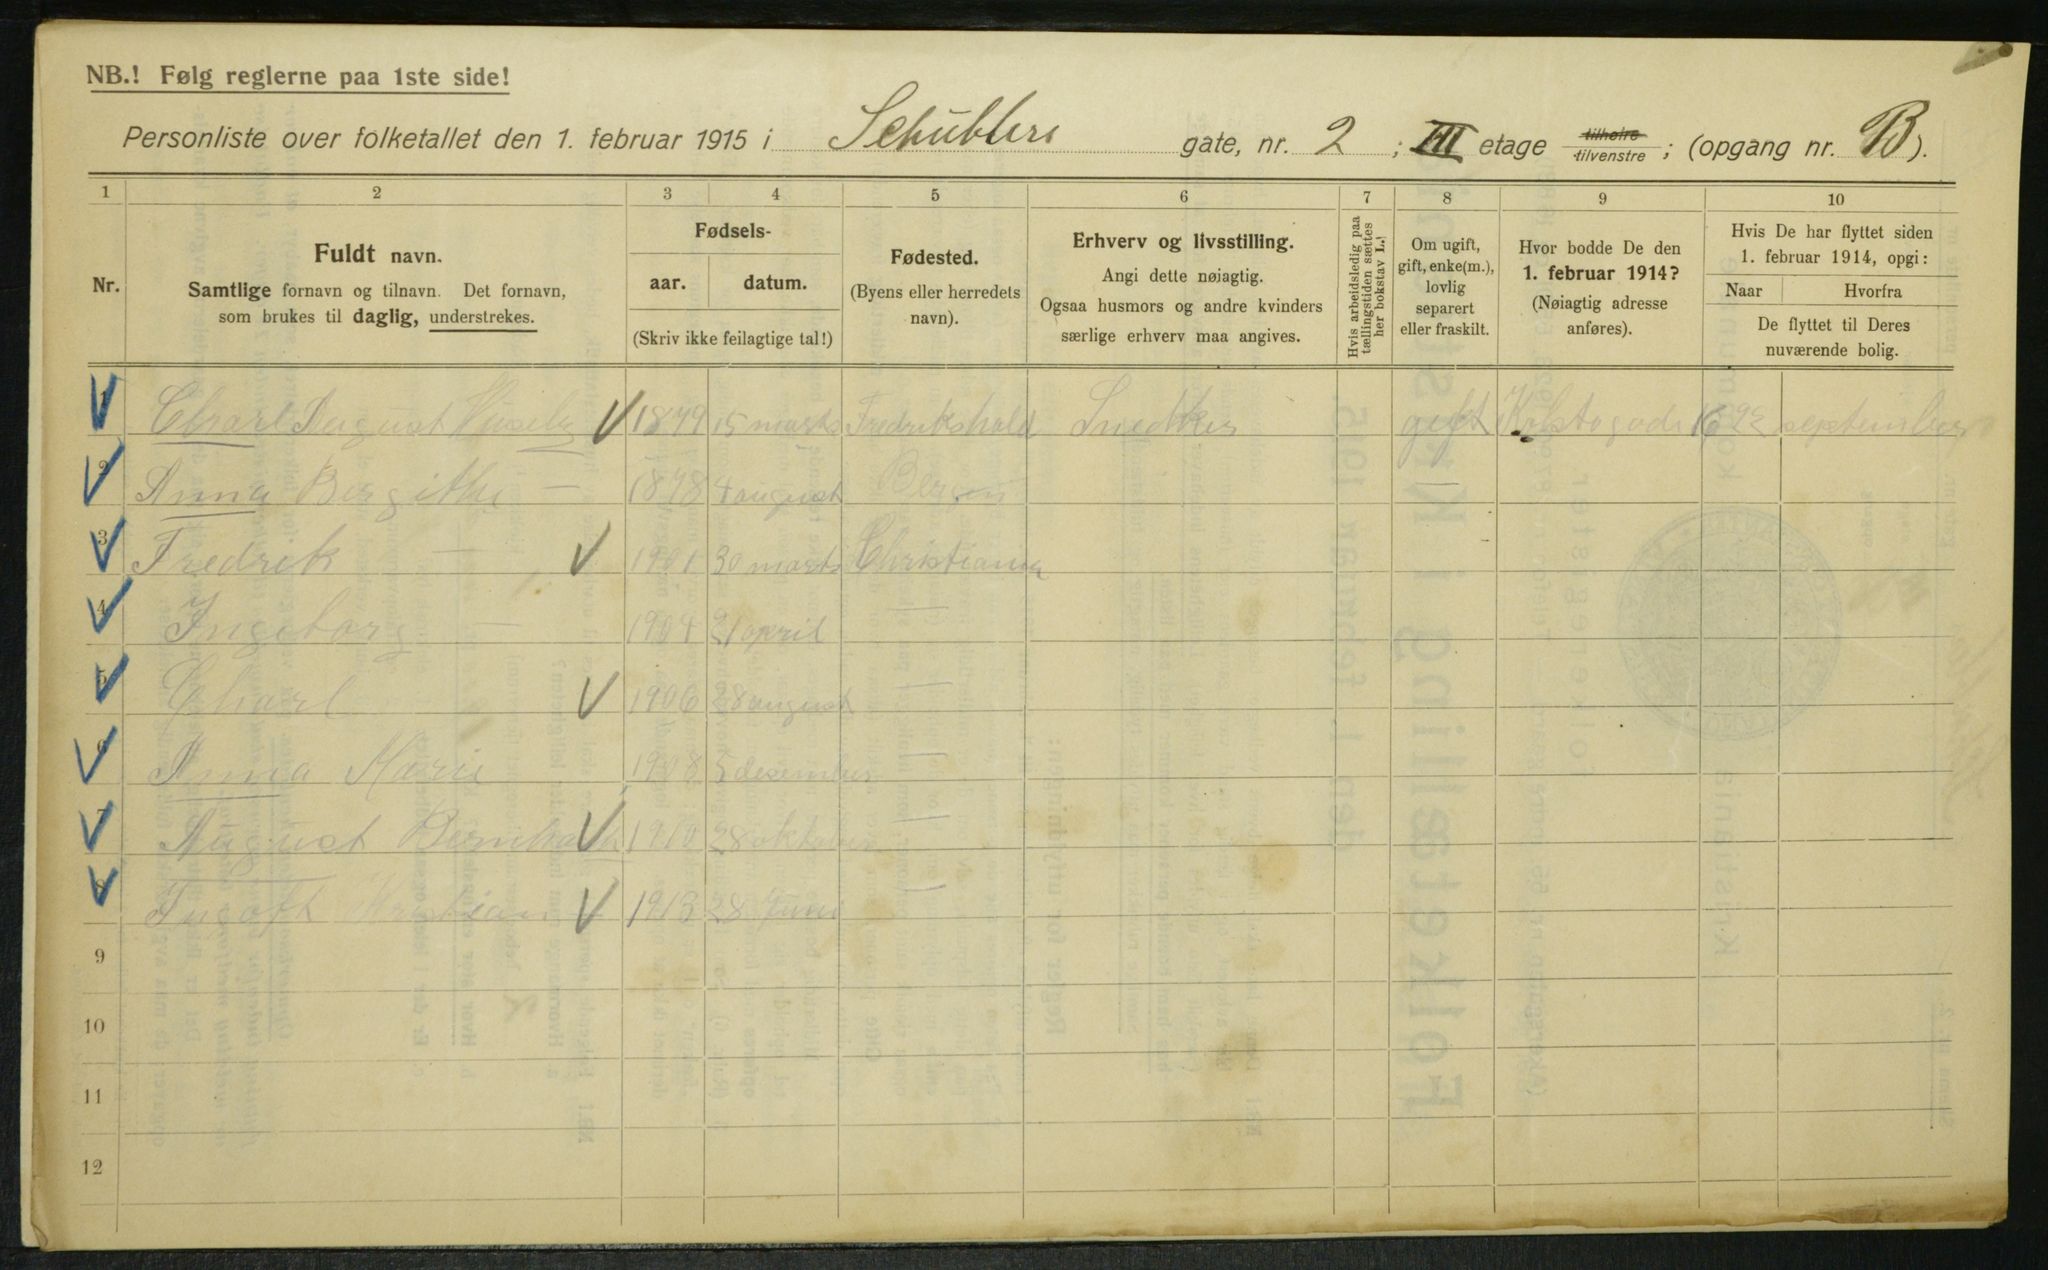 NB.! Følg reglerne paa 1ste side!
Personliste over folketallet den 1. februar 1915 i Schüblers gate, nr. 2 ; III etage tilhøire tilvenstre ; (opgang nr. B).
1 2 3 4 5 6 7 8 9 10
Nr.
Fuldt navn.
Samtlige fornavn og tilnavn. Det fornavn,
som brukes til daglig, understrekes.
Fødsels-
aar. datum.
(Skriv ikke feilagtige tal!)
Fødested.
(Byens eller herredets
navn).
Erhverv og livsstilling.
Angi dette nøiagtig.
Ogsaa husmors og andre kvinders
særlige erhverv maa angives.
Hvis arbeidsledig paa
tællingstiden sættes
her bokstav L.!
Om ugift,
gift, enke(m.),
lovlig
separert
eller fraskilt.
Hvor bodde De den
1. februar 1914?
(Nøiagtig adresse
anføres).
Hvis De har flyttet siden
1. februar 1914, opgi:
Naar Hvorfra
De flyttet til Deres
nuværende bolig.
1 Charl August 1879 15 marts Fredrikshald Snedker gift 16 september
2 Anna Bergithe — 1878 4 august Bergen —
3 Fredrik — 1901 30 marts Christiania
4 Ingeborg — 1904 21 april —
5 Charl 1906 28 august —
6 Anna Marie 1908 5 desember —
7 August 1910 28 oktober —
8 Kristian 1913 28 Juni —
9
10
11
12